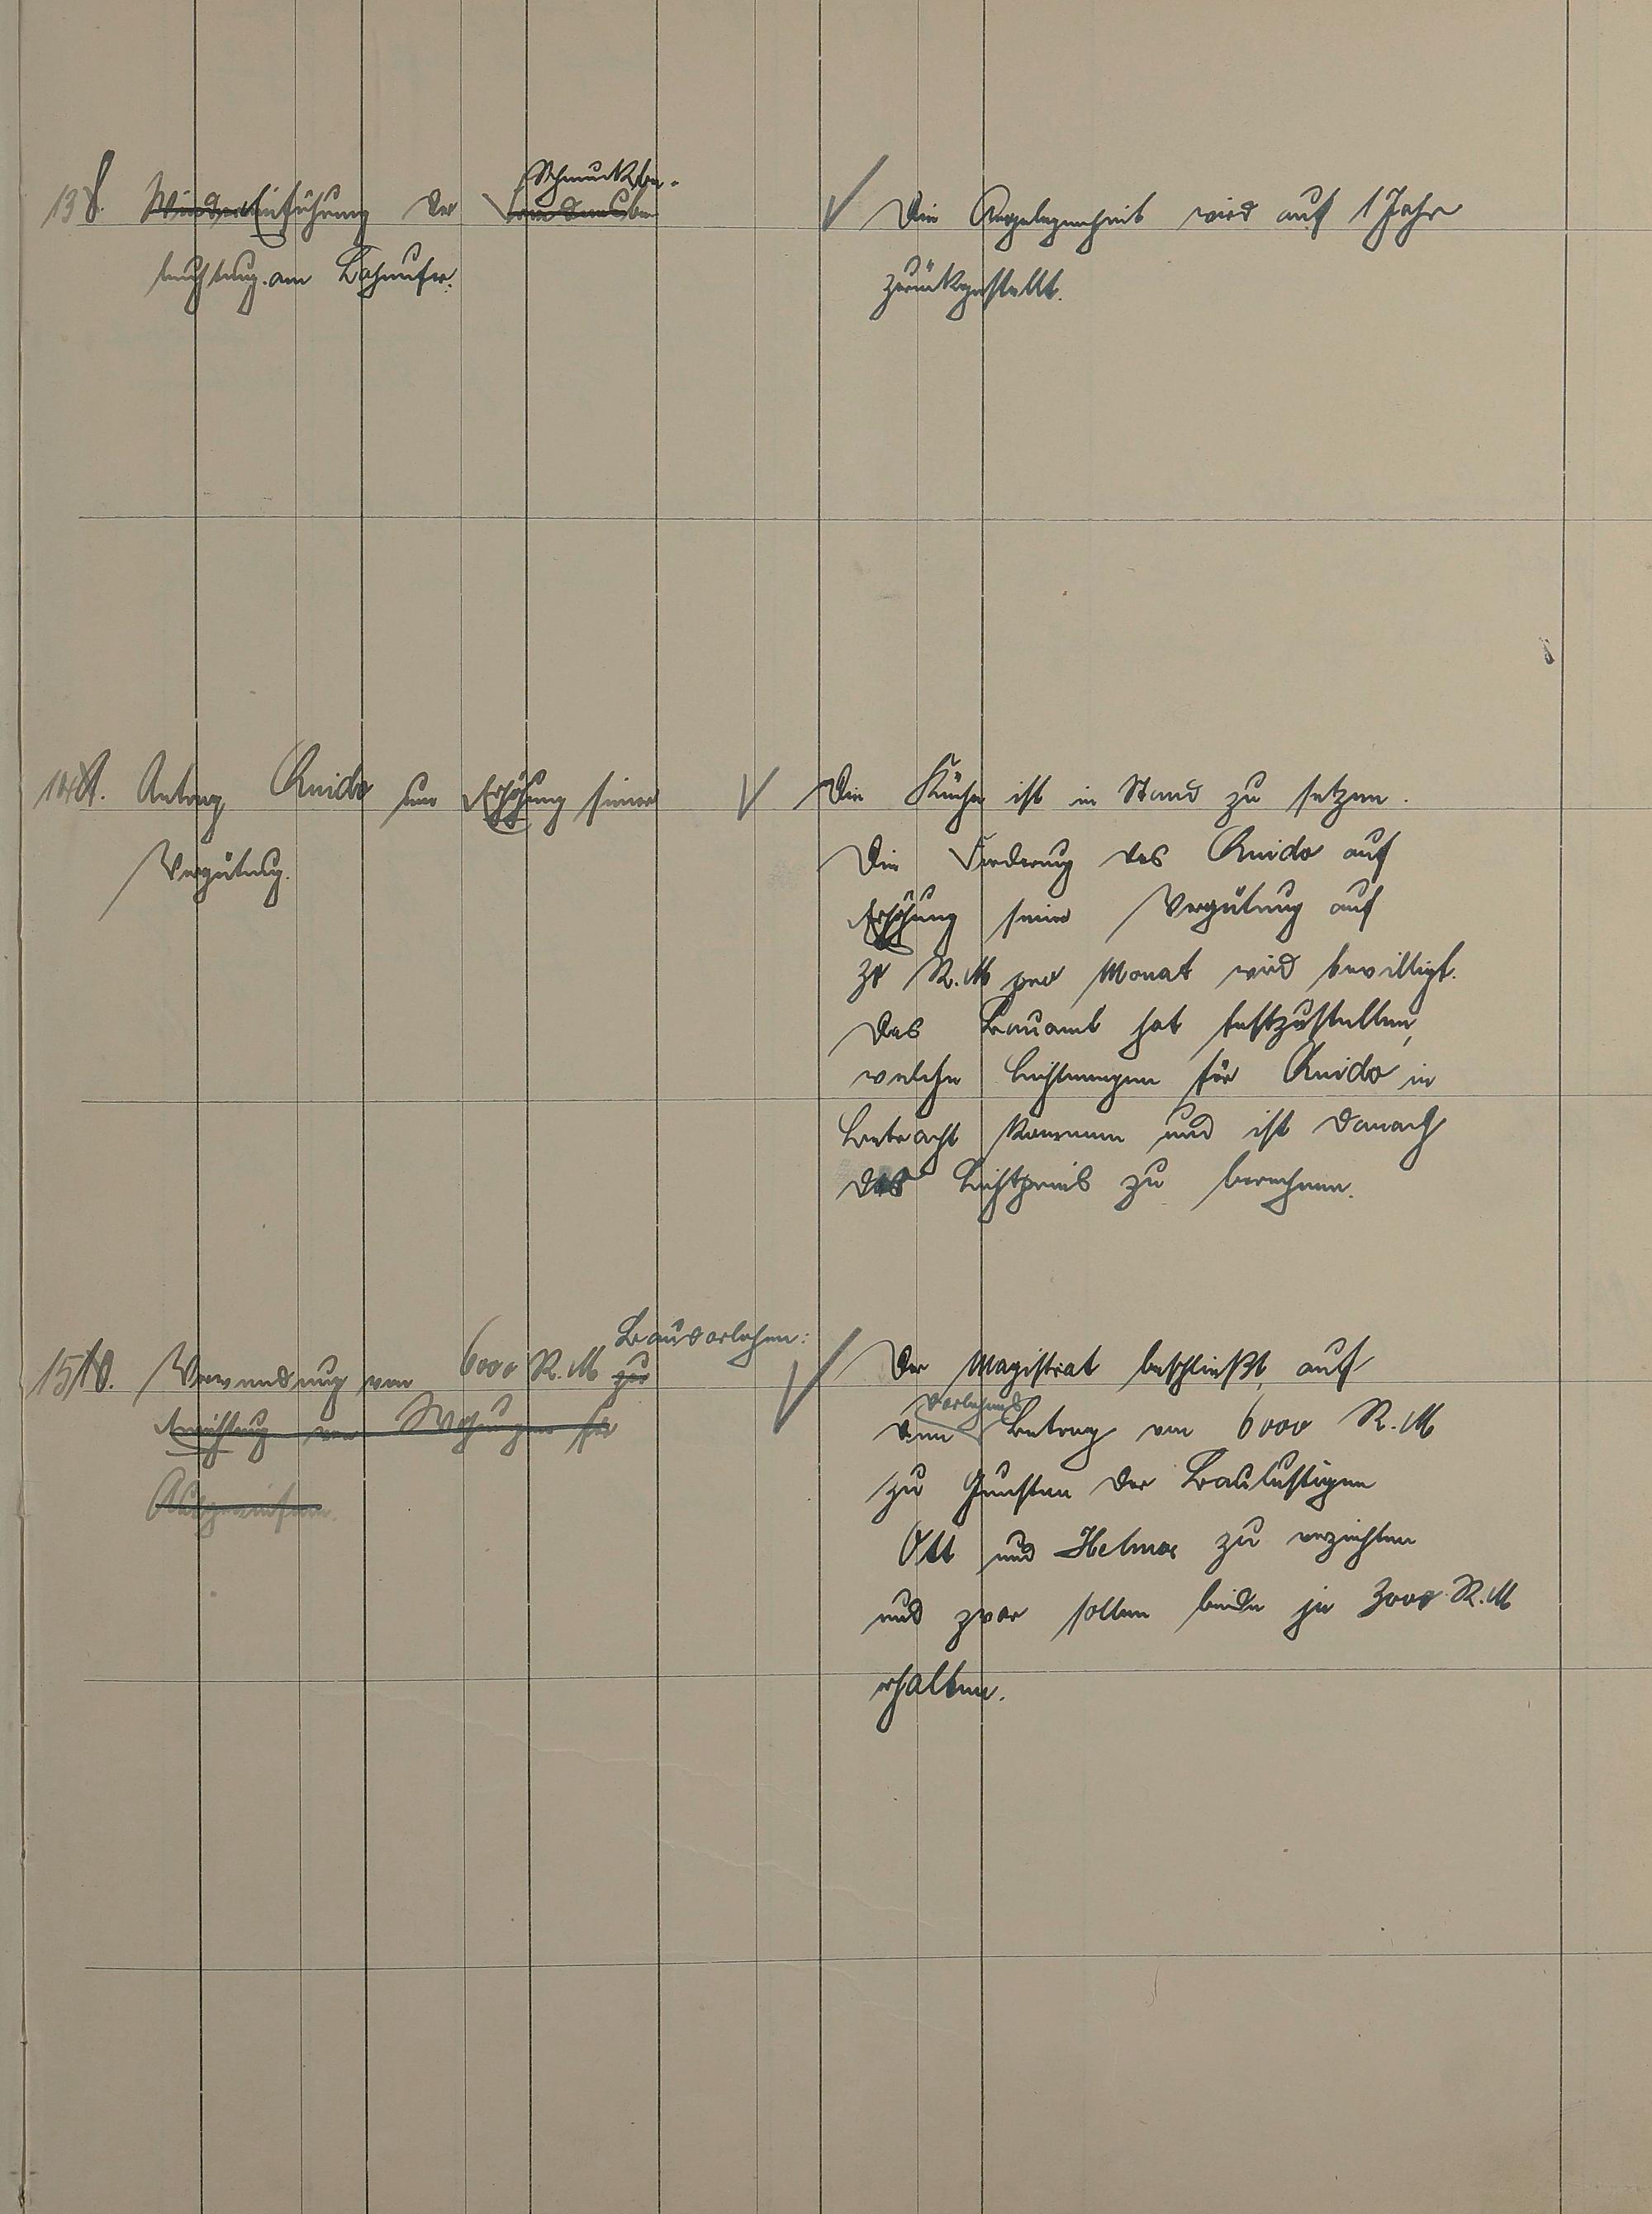 13. Wieder Einführung der Schmuckbe-
leuchtung am Bahnufer.
Die Angelegenheit wird auf 1 Jahr
zurückgestellt.
14. Antrag Quido um Erhöhung seiner
Vergütung.
Die Küche ist in Stand zu setzen.
Die Forderung des Quido auf
Erhöhung seiner Vergütung auf
R.M pro Monat wird bewilligt.
Das Bauamt hat festzustellen,
welche Leistungen für Quido in
Betracht kommen und ist danach
der Lichtpreis zu berechnen.
15. Verwendung von 6000 R.M zur Baudarlehen:
Errichtung von Wohnungen für
Der Magistrat beschließt, auf
den Darlehens Betrag von 6000 R.M
zu Gunsten der Baulustigen
Ott und Helmer zu verzichten
und zwar sollen beide je 3000 R.M
erhalten.